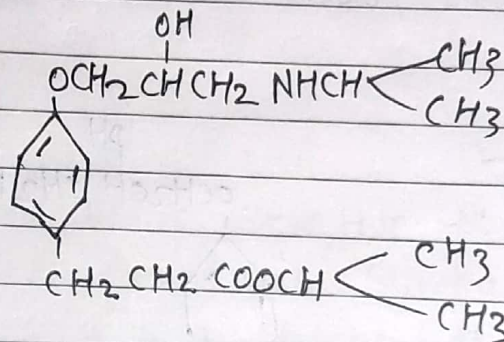 OH
OCH2 CH CH2 NHCH CH3
CH3
CH2 CH2 COOCH CH3
CH2